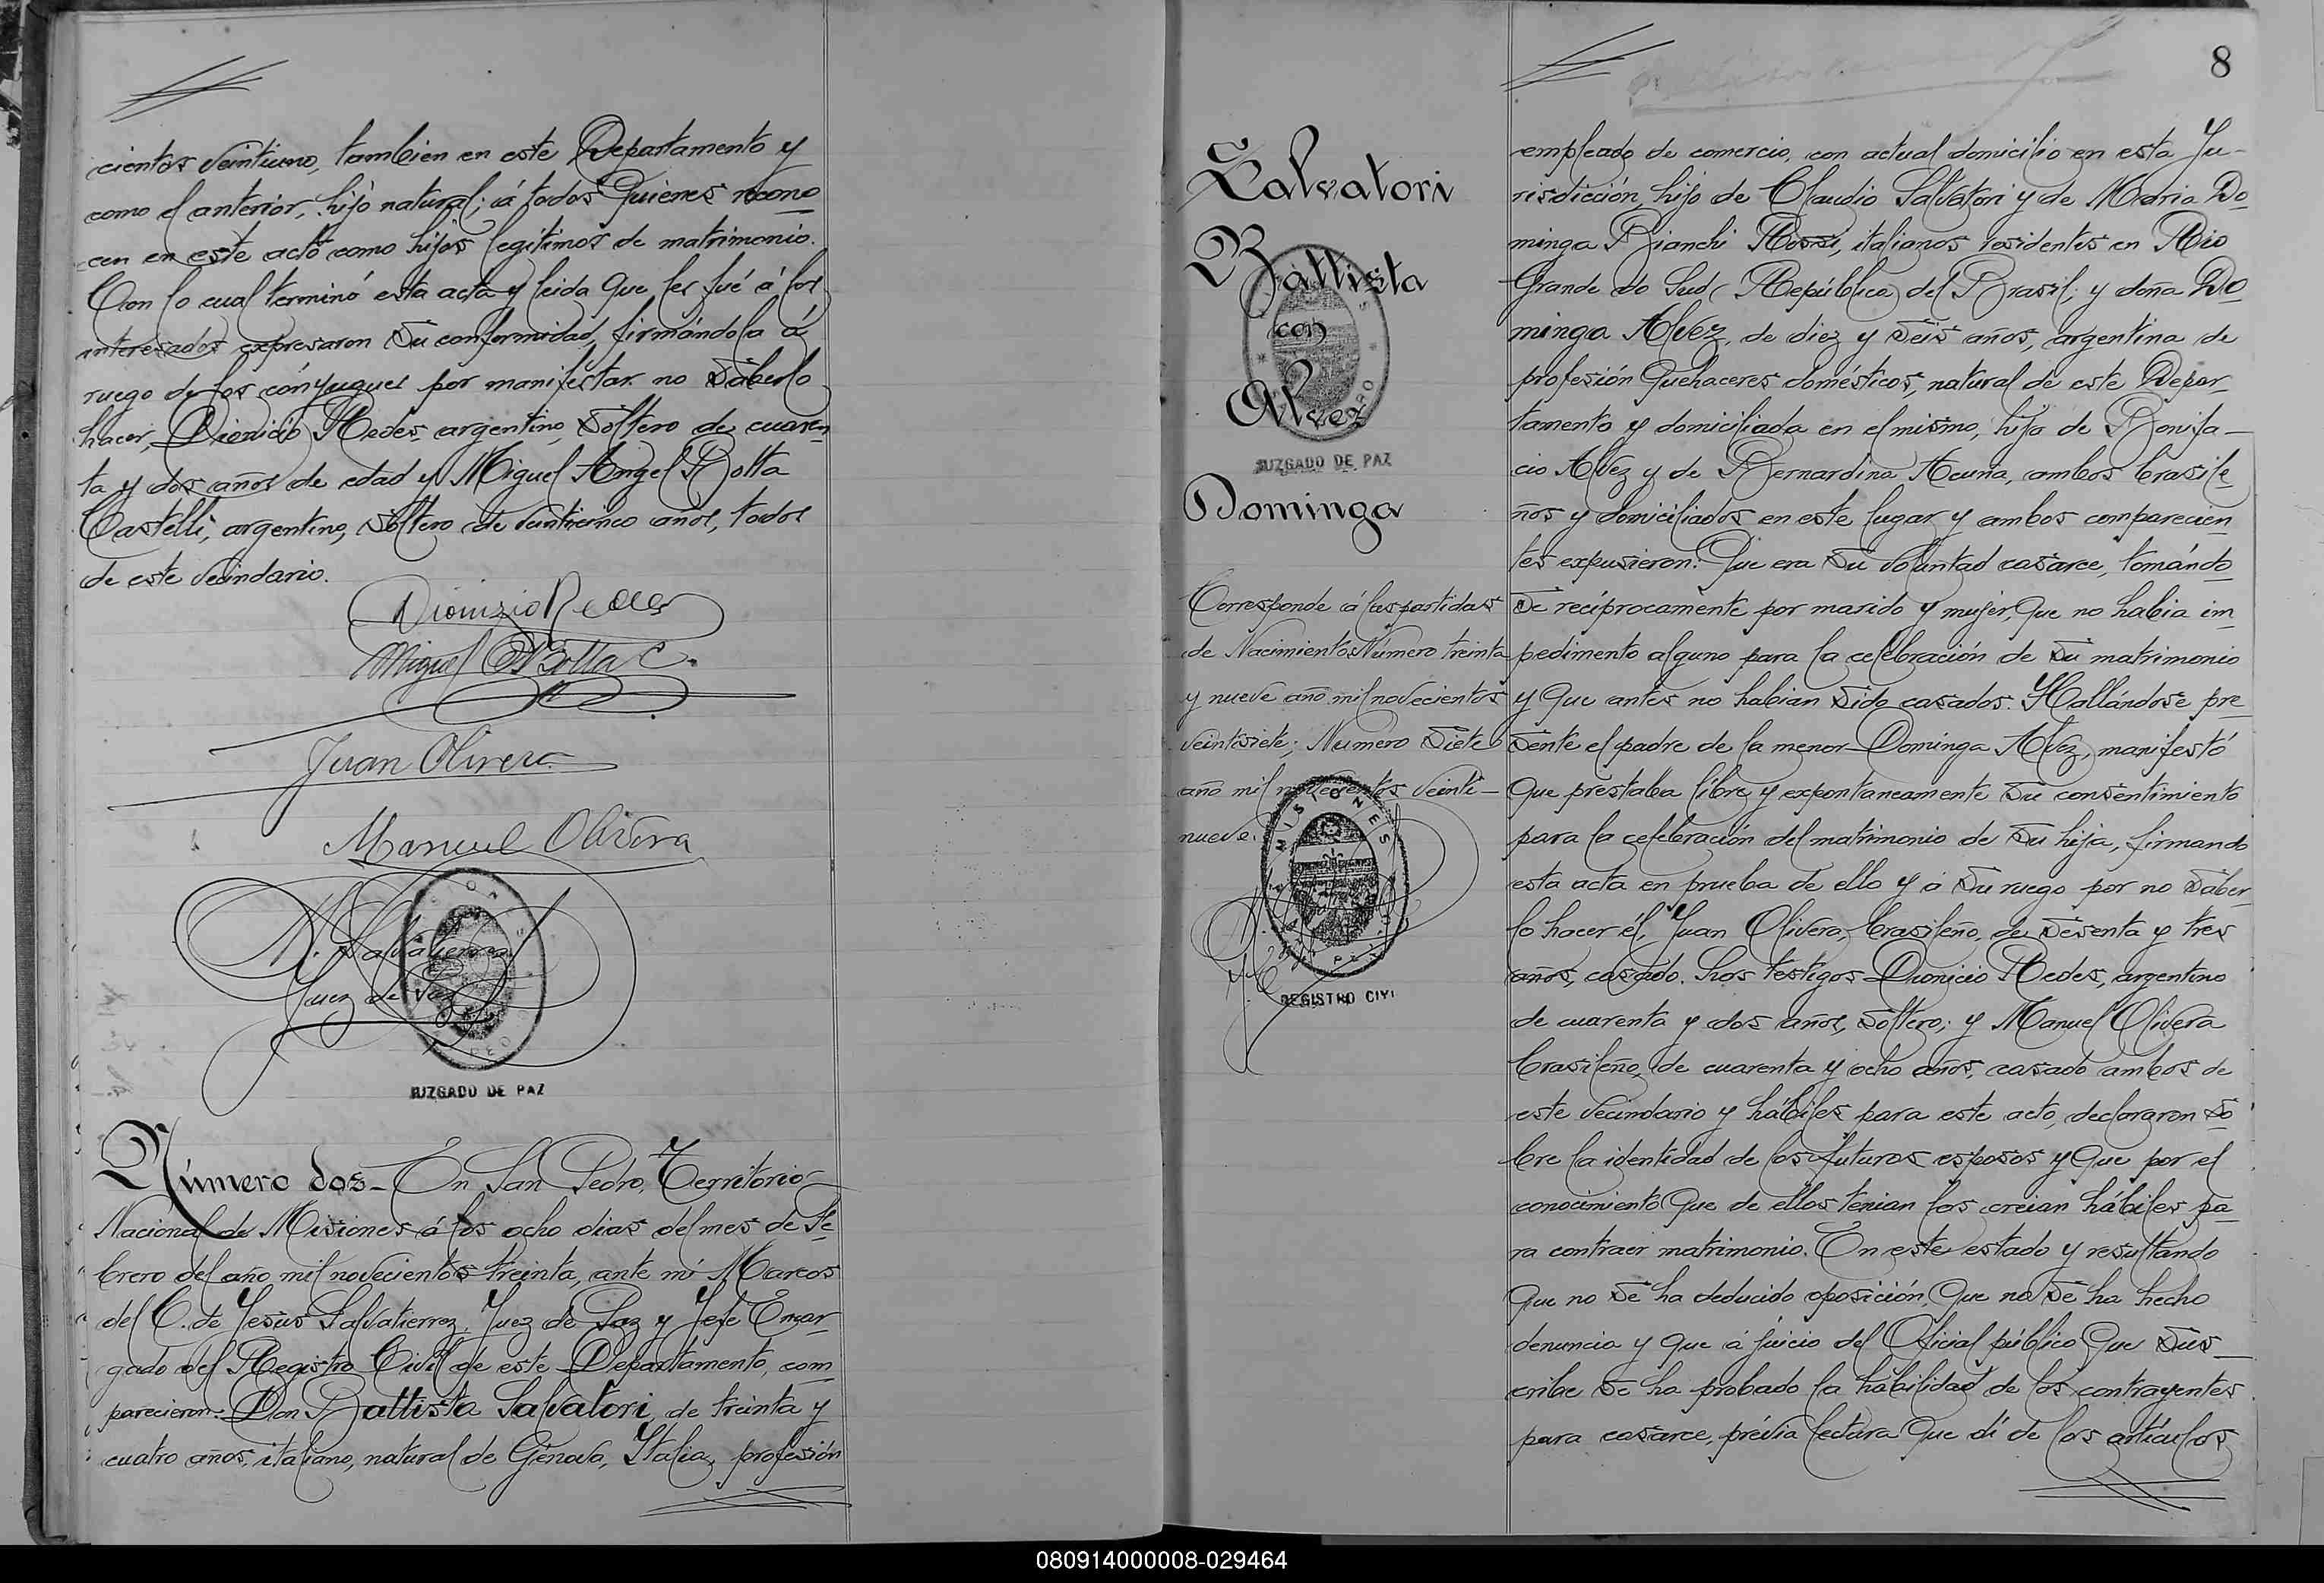 cientos veintiuno, tambien en este Departamento y
como el anterior, hijo natural; á todos quienes recono
cen en este acto como hijos legitimos de matrimonio.
Con lo cual terminó esta acta y leida que les fué á los
interesados expresaron su conformidad, firmándola á
ruego de los cónyugues por manifestar no saberlo
hacer, Dionicio Redes, argentino, soltero de cuaren
ta y dos años de edad y Miguel Angel Botta
Castelli, argentino, soltero de veinticinco años, todos
de este vecindario.
Dionizio Redes
Miguel A Botta C.
Juan Olivera
Manuel Olivera
M. Salvatierra
Juez de Paz
JUZGADO DE PAZ
Número dos_ En San Pedro, Territorio
Nacional de Misiones á los ocho dias del mes de Fe
brero del año mil novecientos treinta, ante mi Marcos
del C. de Jesús Salvatierrez, Juez de Paz y Jefe Encar-
gado del Registro Civil de este Departamento, com
parecieron: Don Battista Salvatori, de treinta y
cuatro años, italiano, natural de Génova, Italia, profesión
8
Salvatori
Battista
con
Alvez
JUZGADO DE PAZ
Dominga
Corresponde á las partidas
de Nacimientos Número treinta
y nueve año mil novecientos
veintisiete; Numero Siete
año mil novecientos veinti-
nueve.
MISIONES
REGISTRO CIVI
empleado de comercio, con actual domicilio en esta Ju-
risdicción, hijo de Claudio Salvatori y de Maria Do
minga Bianchi Rossi, italianos residentes en Rio
Grande do Sud (República) del Brasil; y doña Do
minga Alvez, de diez y seis años, argentina de
profesión quehaceres domésticos, natural de este Depar_
tamento y domiciliada en el mismo, hija de Bonifa_
cio Alvez y de Bernardina Acuña, ambos brasile_
ños y domiciliados en este lugar y ambos comparecien
tes expusieron: Que era su voluntad casarce, tomándo
se recíprocamente por marido y mujer, que no habia im
pedimento alguno para la celebración de su matrimonio
y que antes no habian sido casados. Hallándose pre_
sente el padre de la menor Dominga Alvez, manifestó
que prestaba libre y expontaneamente su consentimiento
para la celebración del matrimonio de su hija, firmando
esta acta en prueba de ello y á su ruego por no saber
lo hacer él, Juan Olivera, brasileño, de sesenta y tres
años, casado. Los testigos Dionicio Redes, argentino
de cuarenta y dos años, soltero; y Manuel Olivera
brasileño, de cuarenta y ocho años, casado ambos de
este vecindario y hábiles para este acto, declararon so
bre la identidad de los futuros esposos y que por el
conocimiento que de ellos tenian los creian hábiles pa_
ra contraer matrimonio. En este estado y resultando
que no se ha deducido oposición, que no se ha hecho
denuncia y que á juicio del Oficial público que sus_
cribe se ha probado la habilidad de los contrayentes
para casarce, prévia lectura que dí de los artículos
080914000008-029464